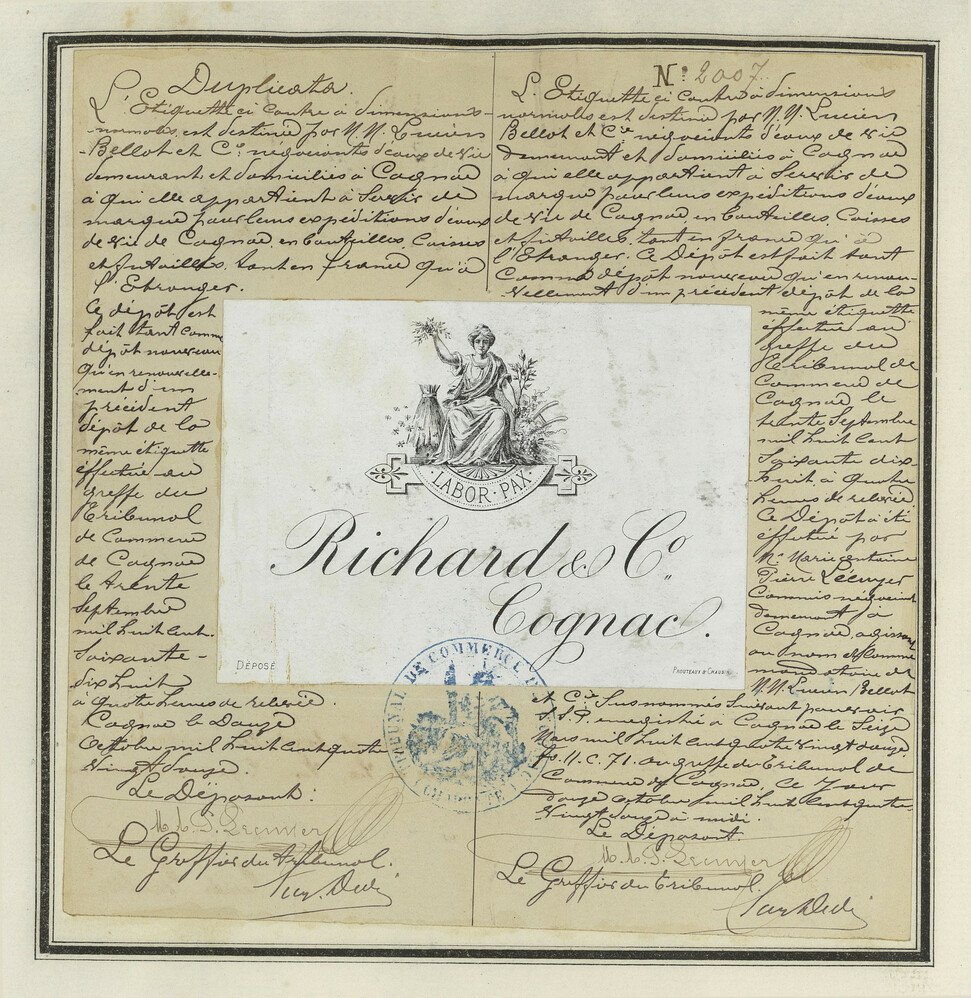 Duplicata.
L'Etiquette ci contre à dimensions
normales, est destinée par M.M. Lucien
Bellot et Cie négociants d'eaux de vie
demeurant et domiciliés à Cognac
à qui elle appartient à Servir de
marque pour leurs expéditions d'eaux
de vie de Cognac, en bouteilles, Caisses
et futailles, tant en france qu'à
l'Etranger.
Ce dépôt est
fait tant comme
dépôt nouveau
qu'en renouvelle-
ment d'un
précédent
dépôt de la
même étiquette
effectué au
greffe du
Tribunal
de Commerce
de Cognac
le trente
Septembre
mil huit cent
Soixante-
dix huit
à quatre heures de relevée.
Cognac le Douze
Octobre mil huit cent quatre
Vingt douze.
Le Déposant:
M.A.P. Lecuyer
Le Greffier du Tribunal.
N° 2007
L'Etiquette ci contre à dimensions
normales est destinée par M.M. Lucien
Bellot et Cie négociants d'eaux de vie
demeurant et domiciliés à Cognac
à qui elle appartient à Servir de
marque pour leurs expéditions d'eaux
de vie de Cognac en bouteilles Caisses
et futailles, tant en france qu'à
l'Etranger. Ce Dépôt est fait tant
Comme dépôt nouveau qu'en renou-
vellement d'un précédent dépôt de la
même étiquette
effectué au
greffe du
Tribunal de
Commerce de
Cognac le
trente Septembre
mil huit cent
Soixante dix-
huit à quatre
heures de relevée
Ce Dépôt a été
effectué par
Pierre Lécuyer
Commis négociant
demeurant à
Cognac, agissant
au nom et comme
mandataire de
M.M. Lucien Bellot
et Cie Susnommés Suivant pouvoir
S.S.P. enregistré à Cognac le Seize
Mars mil huit cent quatre vingt douze
fo. 11. C. 71. au greffe du Tribunal de
Commerce de Cognac, le Jour
douze octobre mil huit cent quatre-
Vingt douze à midi.
Le Déposant.
M.A.P. Lecuyer
Le Greffier du Tribunal.
LABOR·PAX
Richard & Co.
Cognac.
DÉPOSÉ
TRIBUNAL DE COMMERCE